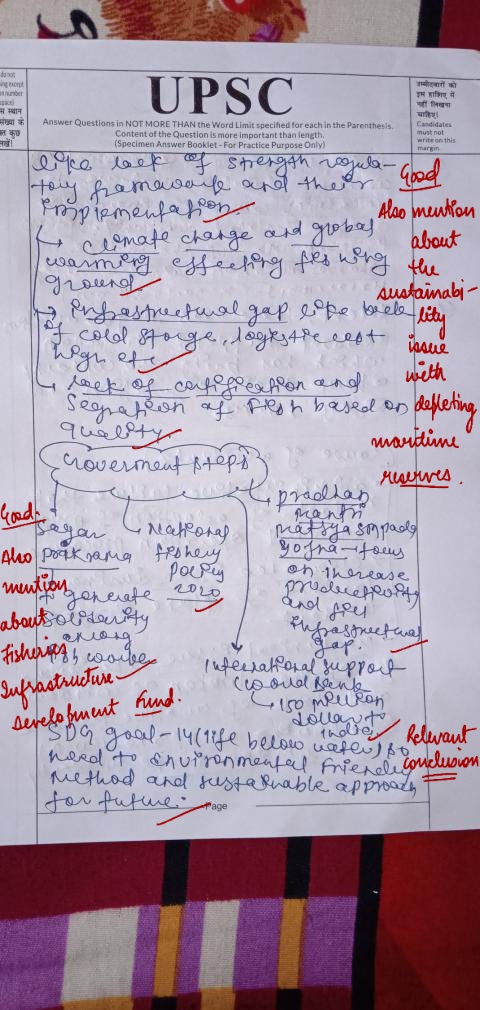 UPSC
Answer Questions in NOT MORE THAN the Word Limit specified for each in the Parenthesis.
Content of the Question is more important than length.
(Specimen Answer Booklet - For Practice Purpose Only)
उम्मीदवारों को
इस हाशिए में
नहीं लिखना
चाहिए।
Candidates
must not
write on this
margin.
like lack of strength regula-
tory framework and their
implementation.
→ climate change and global
warming effecting fishing
ground
→ infrastructural gap like lack
of cold storge, logistic cost
high etc
lack of certification and
Segration of fish based on
quality.
Good
Also mention
about
the
sustainabi-
lity
issue
with
depleting
maritime
reserves.
Goverment steps
Sagar
parikrama
to generate
Solidarity
among
National
fishery
Policy
2020
pradhan
mantri
matsya smpada
yojna - focus
on increase
productivity
and
infrastructural
gap.
International support
world bank
150 million
dollar to
india
Good.
Also
mention
about
Fisheries
Infrastructure
Development Fund.
SDG goal-14 (life below water) so
need to environmental friendly
method and sustainable approach
for future.
Relevant
conclusion
Page